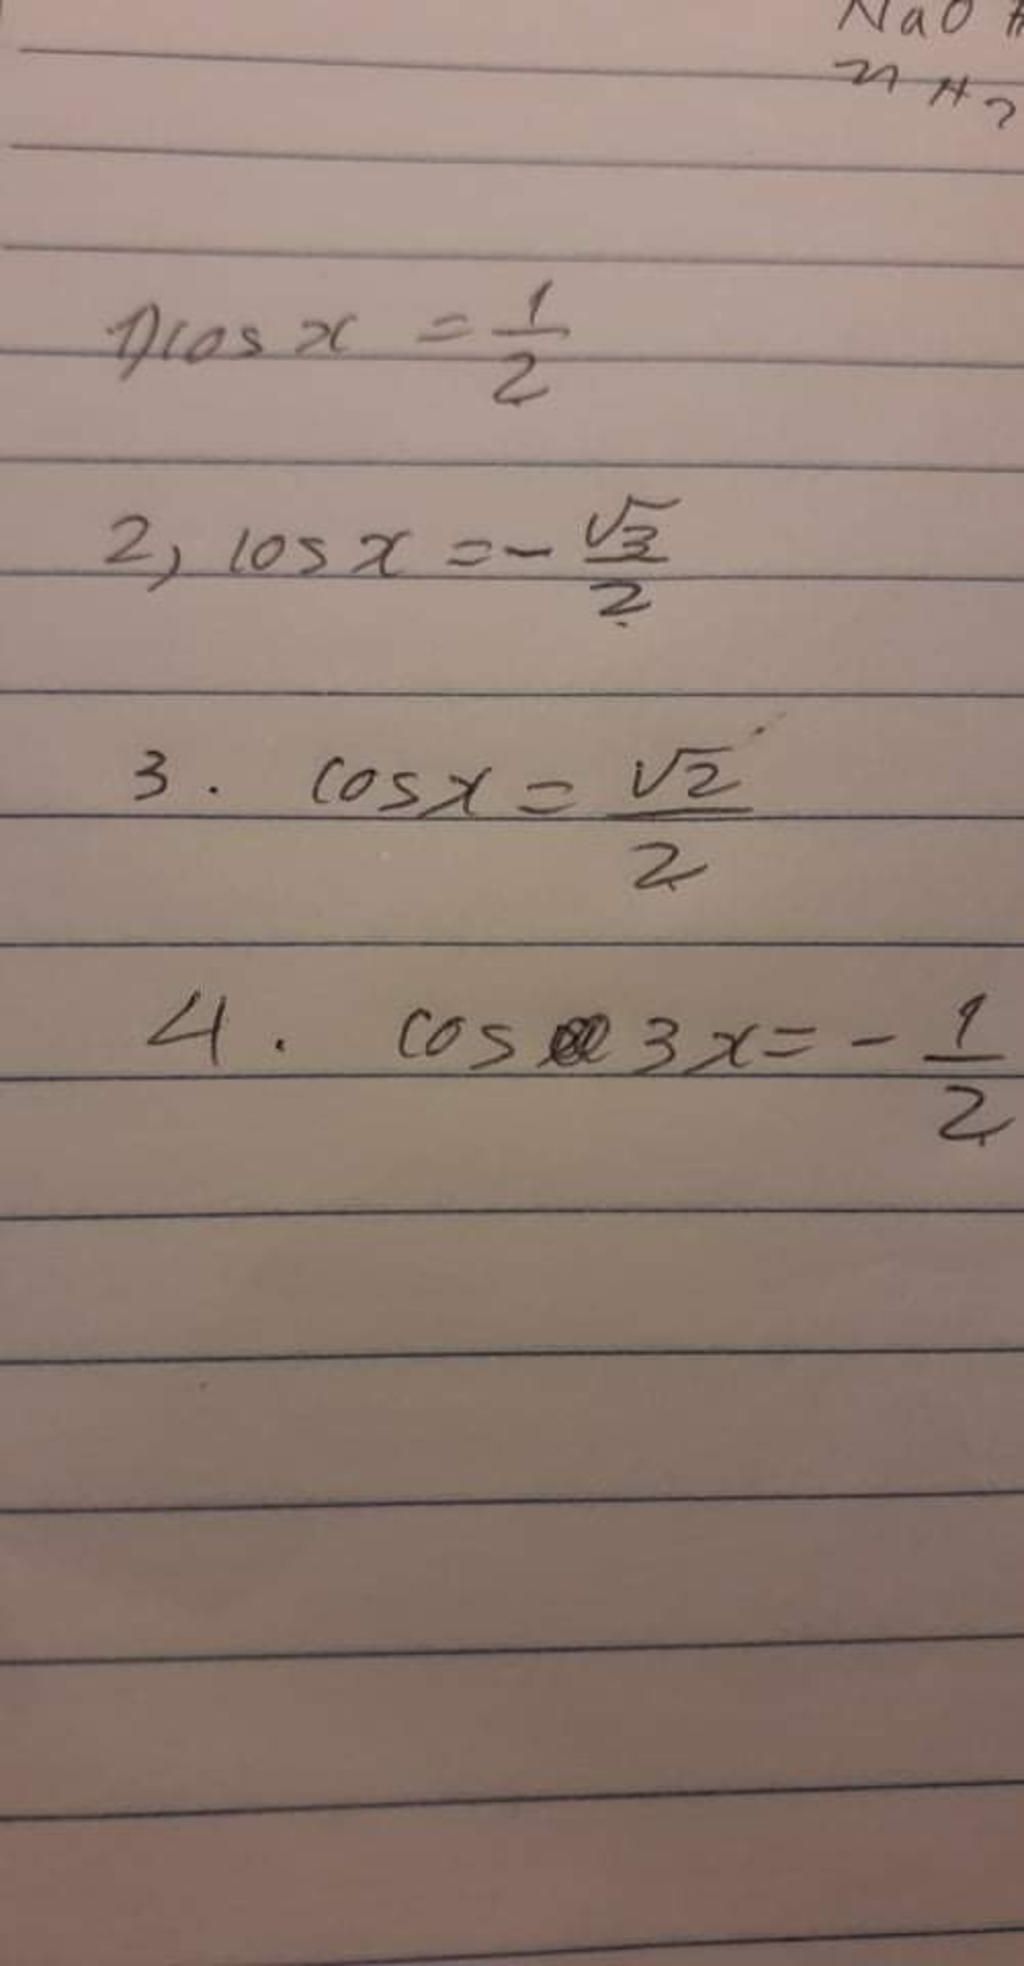 NaO
1) cos x = 1/2
2, cos x = - √3/2
3. cos x = √2/2
4. cos 3x = - 1/2